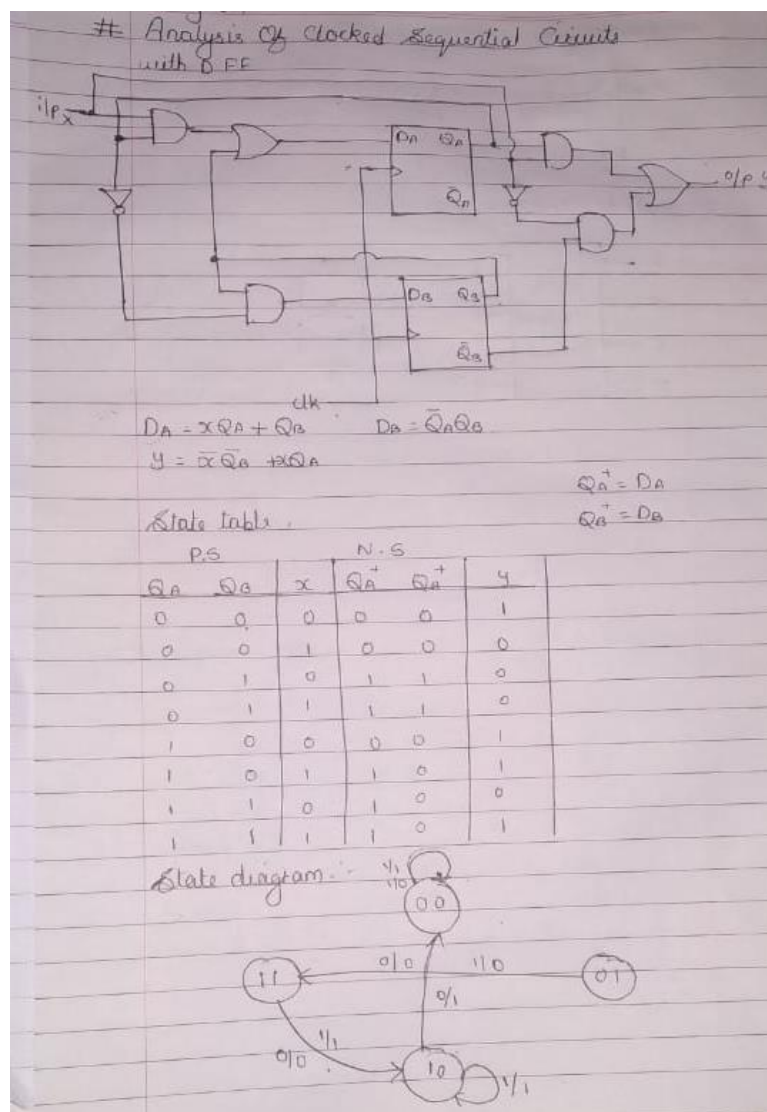 # Analysis Of Clocked Sequential Circuits
with D FF
i/p x
DA QA
Q̄A
o/p y
DB QB
Q̄B
clk
DA = xQA + QB DB = Q̄AQB
y = x̄Q̄B + xQA
QA⁺ = DA
State table. QB⁺ = DB
P.S N.S
QA QB x QA⁺ QA⁺ y
0 0 0 0 0 1
0 0 1 0 0 0
0 1 0 1 1 0
0 1 1 1 1 0
1 0 0 0 0 1
1 0 1 1 0 1
1 1 0 1 0 0
1 1 1 1 0 1
State diagram :-
1/1
1/0
00
11 0/0 1/0 01
0/1
0/0 1/1
10 1/1